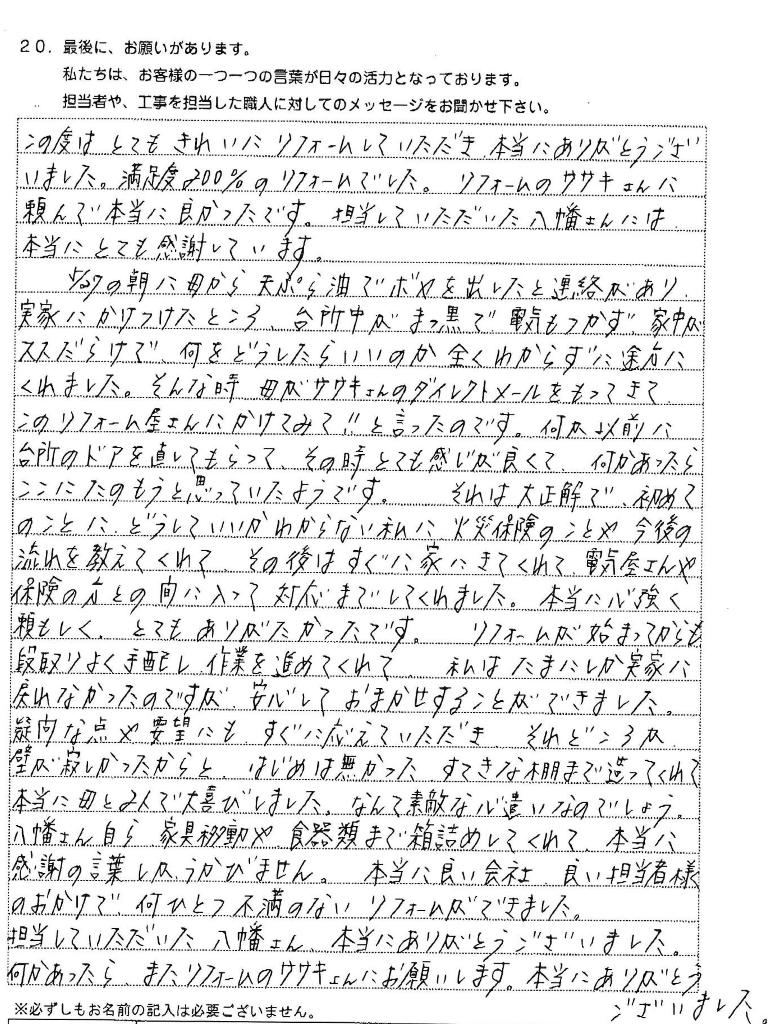 20．最後に、お願いがあります。
私たちは、お客様の一つ一つの言葉が日々の活力となっております。
担当者や、工事を担当した職人に対してのメッセージをお聞かせ下さい。
この度は とても きれいに リフォームしていただき 本当にありがとうござ
いました。満足度200%の リフォームでした。 リフォームのササキさんに
頼んで本当に良かったです。担当していただいた八幡さんには
本当に とても 感謝しています。
5/27の朝に 母から 天ぷら油で ボヤを出したと連絡があり
実家に かけつけたところ、台所中が まっ黒で 電気もつかず 家中が
ススだらけで、何をどうしたらいいのか 全くわからずに 途方に
くれました。そんな時 母がササキさんのダイレクトメールをもってきて
このリフォーム屋さんにかけてみて!! と言ったのです。何か以前に
台所のドアを直してもらって、その時とても感じが良くて、何かあったら
ここにたのもうと思っていたようです。 それは大正解で、初めて
のことに、どうしていいかわからない私に 火災保険のことや 今後の
流れを教えてくれて、その後はすぐに家にきてくれて、電気屋さんや
保険の方との間に入って 対応までしてくれました。本当に心強く
頼もしく、とても ありがたかったです。 リフォームが始まってからも
段取りよく手配し、作業を進めてくれて、私は たまにしか実家に
戻れなかったのですが、安心して おまかせすることができました。
疑問な点や要望にも すぐに応えていただき それどころか、
壁が寂しかったからと、はじめは無かった すてきな棚まで造ってくれて
本当に母と2人で大喜びしました。なんて素敵な心遣いなのでしょう。
八幡さん自ら 家具移動や、食器類まで箱詰めしてくれて、本当に
感謝の言葉しかうかびません。 本当に良い会社、良い担当者様
のおかげで、何ひとつ不満のない リフォームができました。
担当していただいた 八幡さん、本当にありがとうございました。
何かあったら、またリフォームのササキさんにお願いします。本当にありがとう
ございました。
※必ずしもお名前の記入は必要ございません。